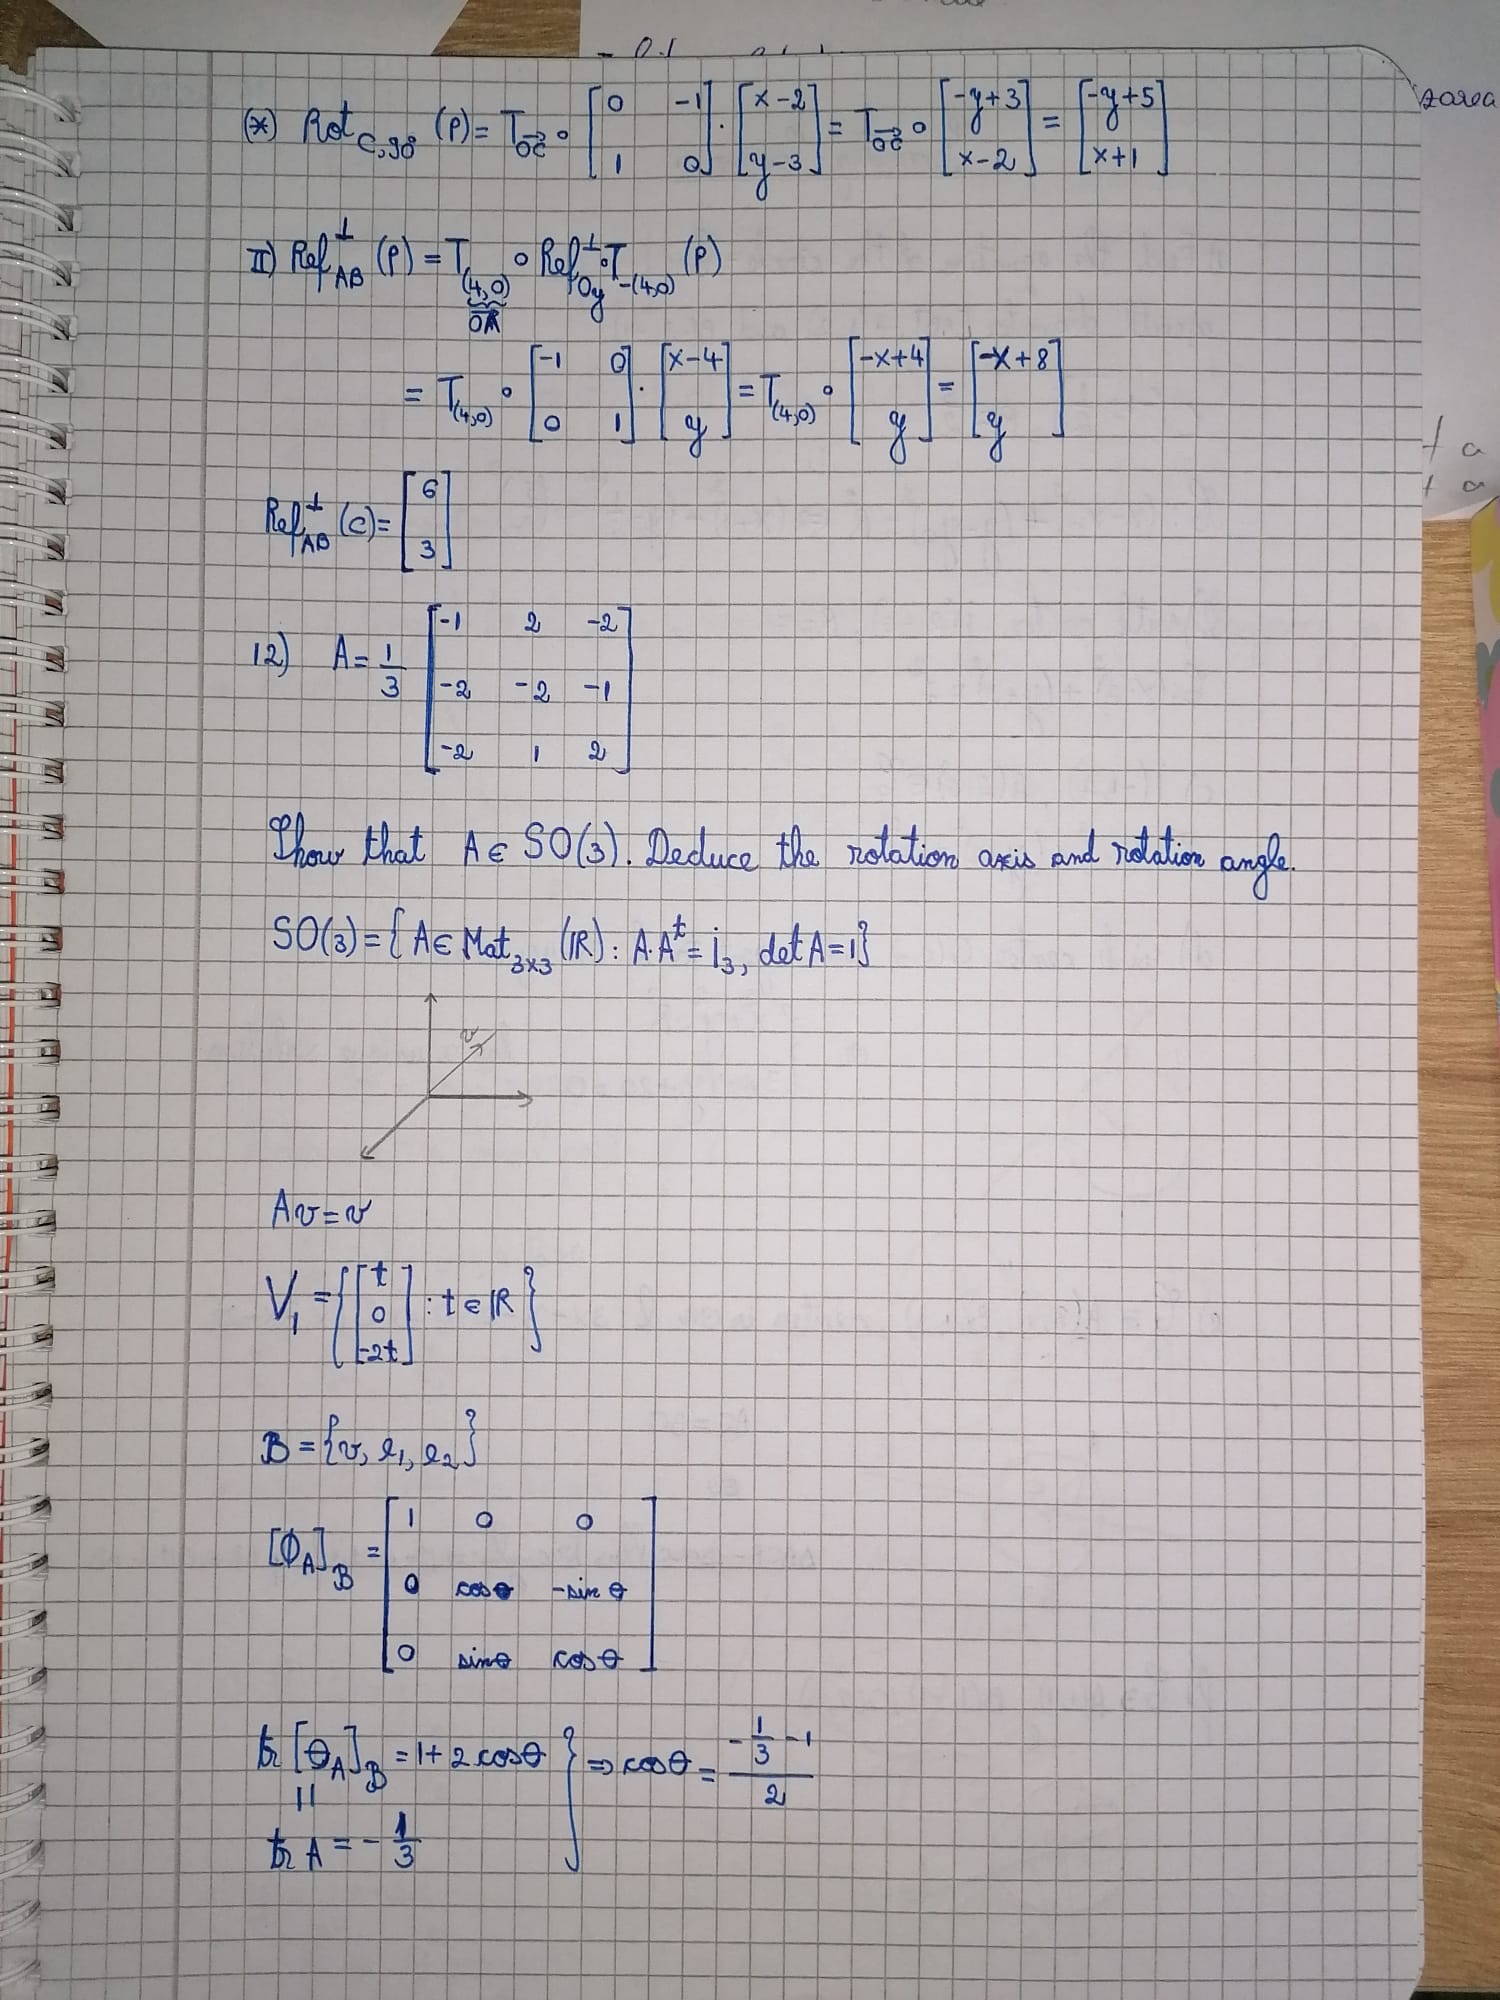 (*) Rot_{C,90°} (P) = T_{\vec{OC}} ∘ [0 -1; 1 0] · [x-2; y-3] = T_{\vec{OC}} ∘ [-y+3; x-2] = [-y+5; x+1]
II) Ref^⊥_{AB} (P) = T_{(4,0)} ∘ Ref^⊥_{Oy} ∘ T_{-(4,0)} (P)
\vec{OA}
= T_{(4,0)} ∘ [-1 0; 0 1] · [x-4; y] = T_{(4,0)} ∘ [-x+4; y] = [-x+8; y]
Ref^⊥_{AB} (C) = [6; 3]
12) A = 1/3 [-1 2 -2; -2 -2 -1; -2 1 2]
Show that A ∈ SO(3). Deduce the rotation axis and rotation angle.
SO(3) = {A ∈ Mat_{3x3} (IR) : A·A^t = I_3, det A = 1}
v
Av = v
V_1 = {[t; 0; -2t] : t ∈ IR}
B = {v, e_1, e_2}
[Φ_A]_B = [1 0 0; 0 cosθ -sinθ; 0 sinθ cosθ]
tr [Θ_A]_B = 1 + 2cosθ } ⇒ cosθ = (-1/3 - 1)/2
||
tr A = -1/3